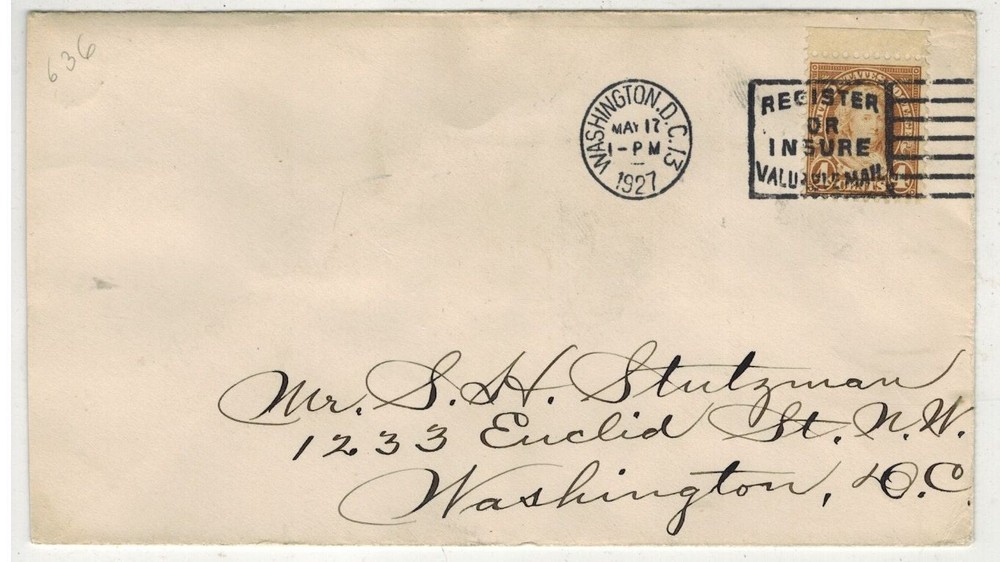 636
WASHINGTON, D.C. 13
MAY 17
1-PM
1927
REGISTER
OR
INSURE
VALUABLE MAIL
4 4
Mr. S. H. Stutzman
1233 Euclid St. N.W.
Washington, D.C.